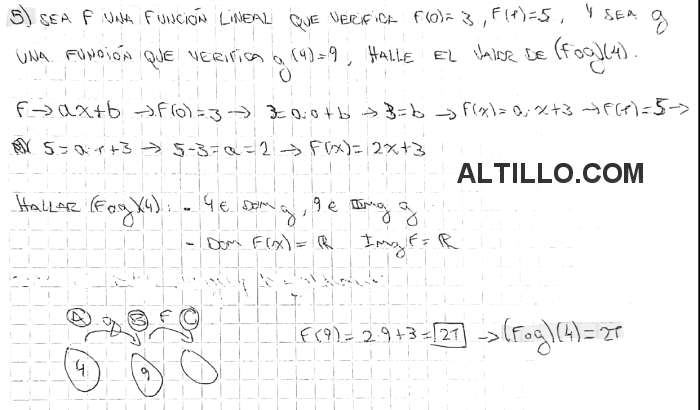 5) SEA F UNA FUNCIÓN LINEAL QUE VERIFICA F(0)=3, F(1)=5, Y SEA g
UNA FUNCIÓN QUE VERIFICA g(4)=9, HALLE EL VALOR DE (Fog)(4).
F→ax+b →F(0)=3→ 3=a.0+b →3=b →F(x)=a.x+3→F(1)=5→
5=a.1+3→ 5-3=a=2→F(x)=2x+3
ALTILLO.COM
HALLAR (Fog)(4): - 4 ∈ Dom g, 9 ∈ Img g
- Dom F(x)=ℝ Img F=ℝ
A g B F C
F(9)=2.9+3=21 →(Fog)(4)=21
4 9